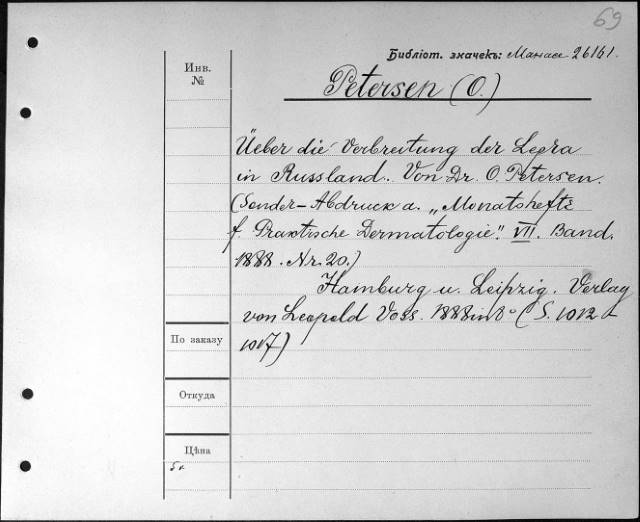 69
Библіот. значекъ: Манасс 26161.
Инв.
№
Petersen (O.)
Üeber die Verbreitung der Lepra
in Russland. Von Dr. O. Petersen.
(Sonder-Abdruck a. „Monatshefte
f. Praktische Dermatologie". VII. Band.
1888. Nr. 20.)
Hamburg u. Leipzig. Verlag
von Leopold Voss. 1888 in 8° (S. 1012-
1017)
По заказу
Откуда
Цѣна